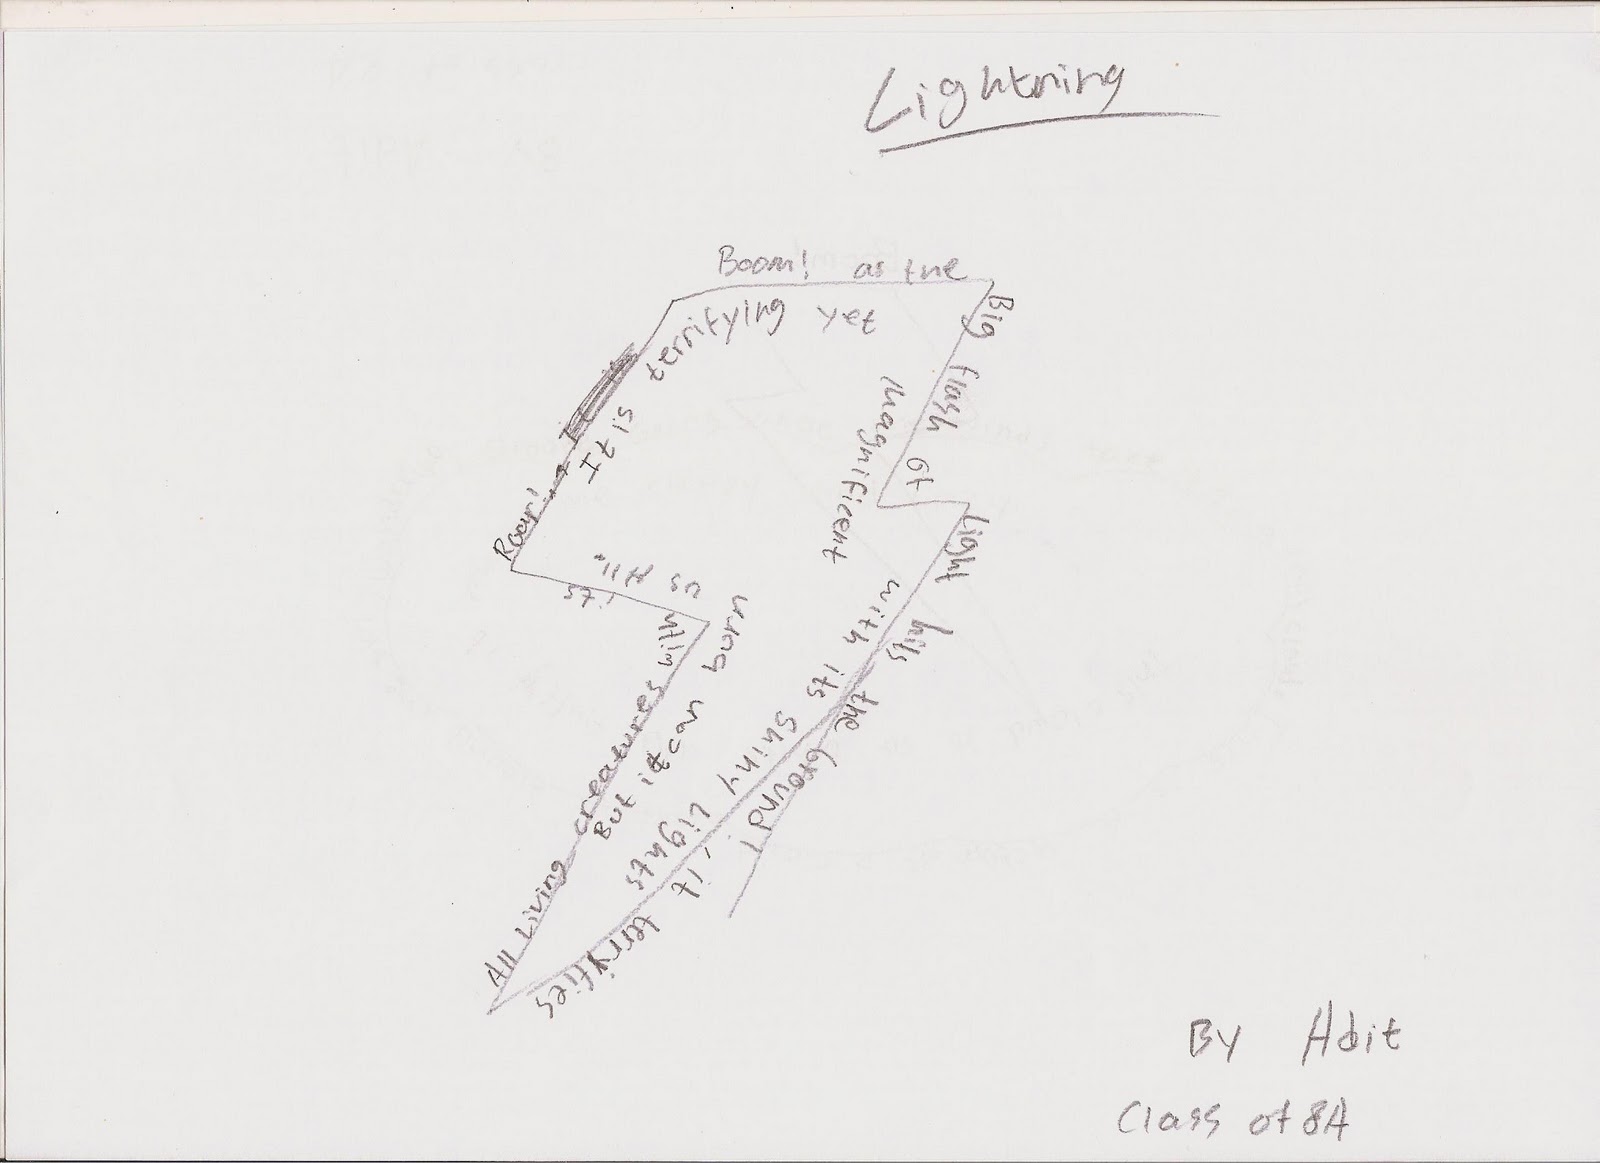 Lightning
Boom! as the
Big flash of
Light hits the Ground!
it terryfies
All Living creatures with
its
Roar!
It is terrifying yet
magnificent
with its shiny Lights
But it can burn
us All.
By Adit
Class of 8A